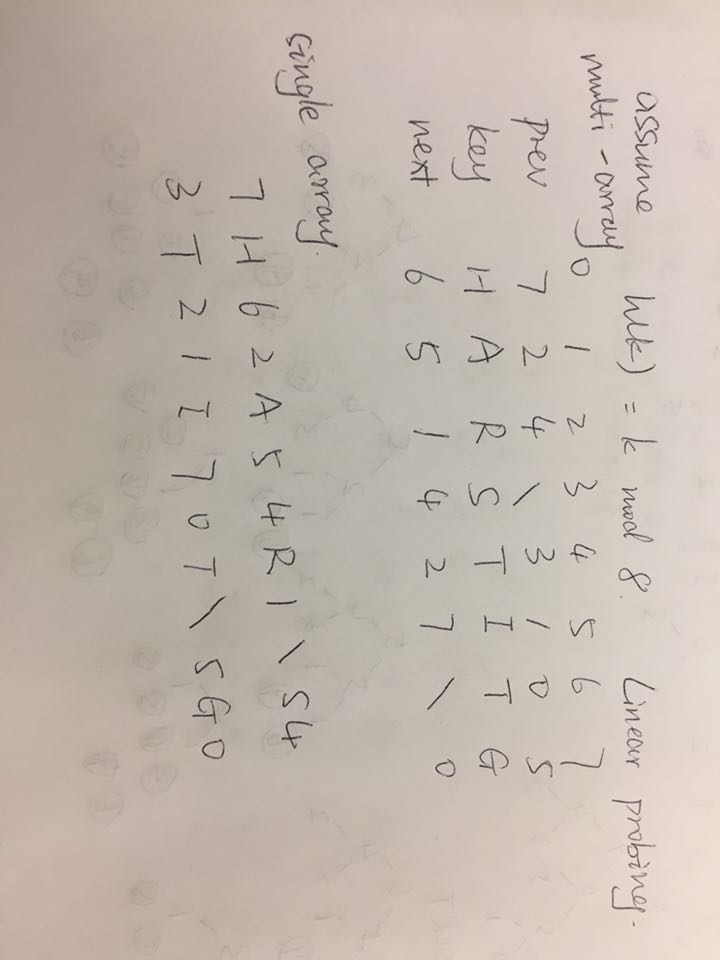 assume h(k) = k mod 8. Linear probing.
multi-array
0 1 2 3 4 5 6 7
prev 7 2 4 \ 3 1 0 5
key H A R S T I T G
next 6 5 1 4 2 7 \ 0
single array.
7 H 6 2 A 5 4 R 1 \ S 4
3 T 2 1 I 7 0 T \ 5 G 0